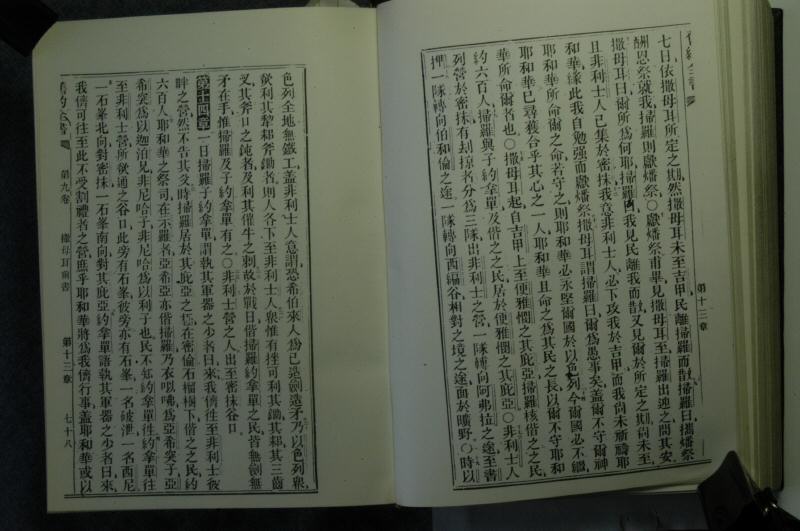 舊約全書
第十三章
七日依撒母耳所定之期然撒母耳未至吉甲民離掃羅而散掃羅曰攜燔祭
酬恩祭就我掃羅則獻燔祭〇獻燔祭甫畢見撒母耳至掃羅出迎之問其安
撒母耳曰爾所為何耶掃羅曰我見民離我而散又見爾於所定之期尚未至
且非利士人已集於密抹我意非利士人必下攻我於吉甲而我尚未祈禱耶
和華緣此我自勉強而獻燔祭撒母耳謂掃羅曰爾為愚事矣蓋爾不守爾神
耶和華所命爾之命若守之則耶和華必永堅爾國於以色列今爾國必不繼
耶和華已尋獲合乎其心之一人耶和華且命之為其民之長以爾不守耶和
華所命爾者也〇撒母耳起自吉甲上至便雅憫之其庇亞掃羅核偕之之民
約六百人掃羅與子約拿單及偕之之民居於便雅憫之其庇亞〇非利士人
列營於密抹有刦掠者分為三隊出非利士之營一隊轉向阿弗拉之途至書
押一隊轉向伯和倫之途一隊轉向西編谷相對之境之途面於曠野〇時以
色列全地無鐵工蓋非利士人意謂恐希伯來人為己造劍造矛乃以色列眾
欲利其犁耜斧鋤者則人各下至非利士人眾惟有挫可利其鋤其耜其三齒
叉其斧口之鈍者及利其催牛之刺故於戰日偕掃羅約拿單之民皆無劍無
矛在手惟掃羅及子約拿單有之〇非利士營之人出至密抹谷口
第十四章 一日掃羅子約拿單謂執其軍器之少者曰來我儕往至非利士彼
畔之營然不告其父時掃羅居於其庇亞之極在密倫石榴樹下偕之之民約
六百人耶和華之祭司在示羅者亞希亞亦偕掃羅乃衣以咈為亞希突子亞
希突為以迦泊兄非尼哈子非尼哈為以利子也民不知約拿單往約拿單往
至非利士營所欲通之谷口此旁有石峯彼旁亦有石峯一名破泄一名西尼
一石峯北向對密抹一石峯南向對其庇亞約拿單語執其軍器之少者曰來
我儕可往至此不受割禮者之營庶乎耶和華將為我儕行事蓋耶和華或以
舊約全書
第九卷
撒母耳前書
第十三章
七十八